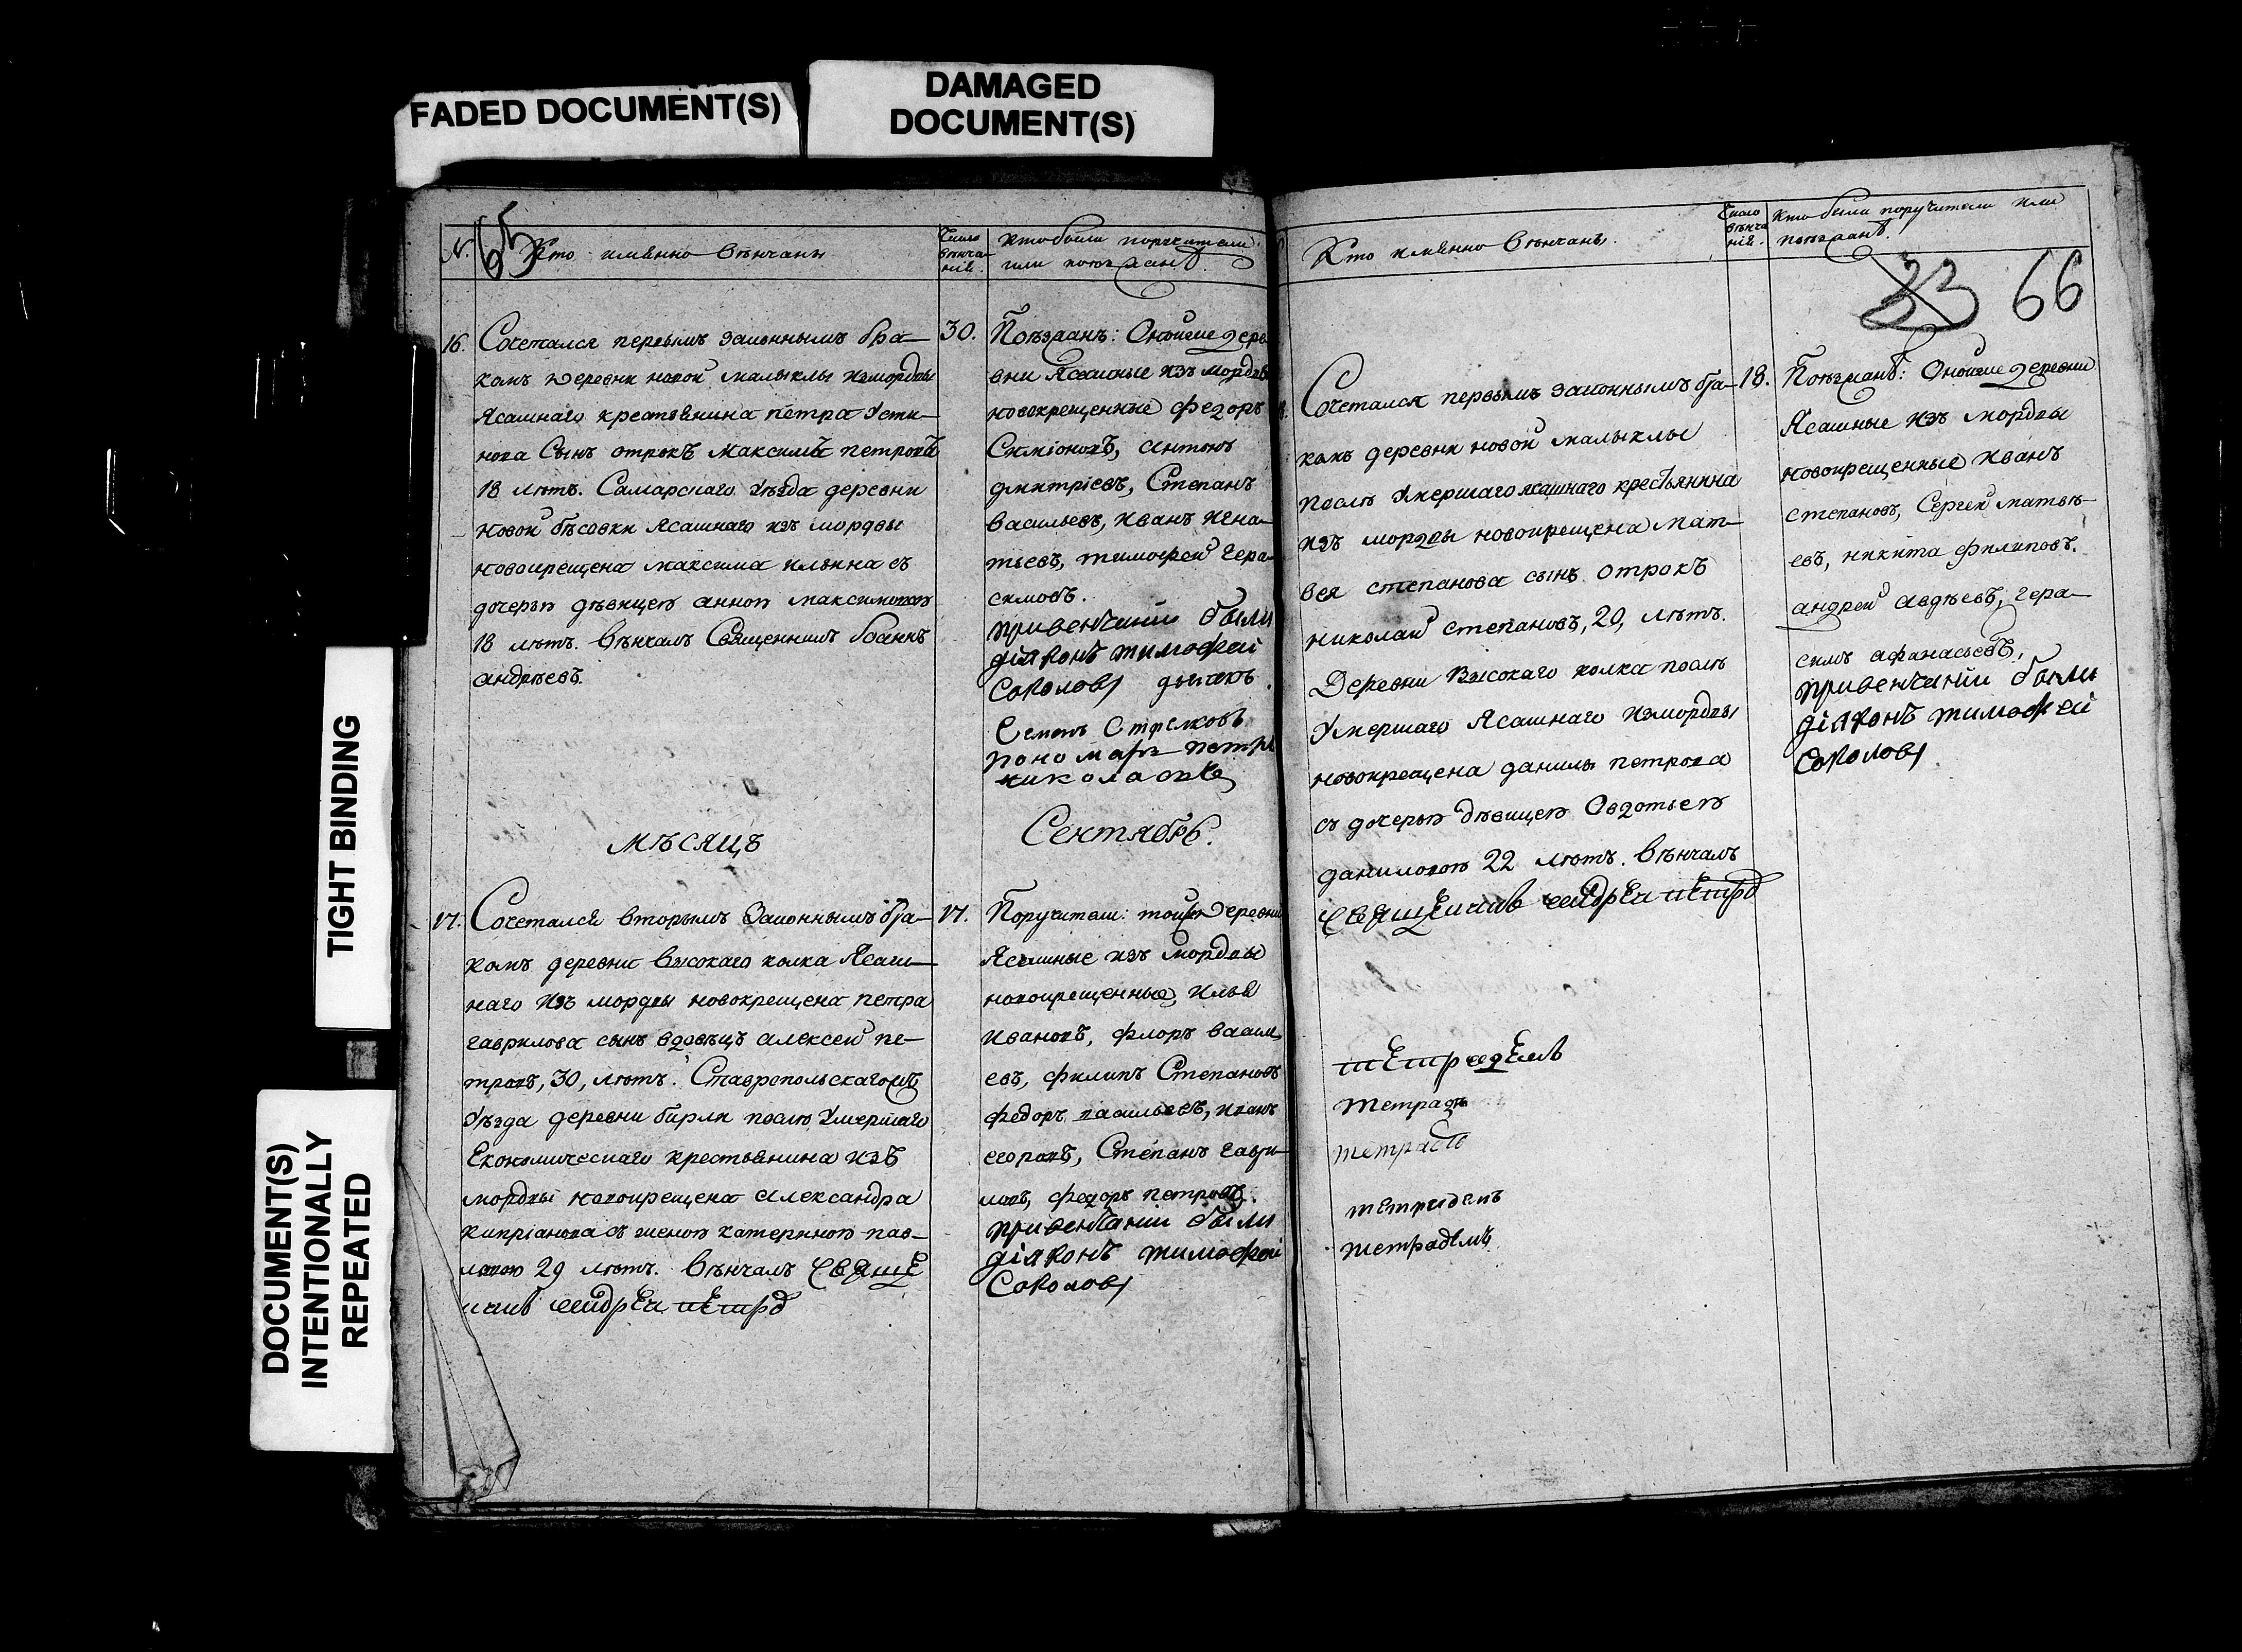 FADED DOCUMENT(S)
DAMAGED
DOCUMENT(S)
TIGHT BINDING
DOCUMENT(S)
INTENTIONALLY
REPEATED
65
№.
Кто имянно венчаны
Число
венча-
нiя.
Кто были поручители
или поезжанѣ.
16.
Сочетался первымъ законнымъ бра-
комъ деревни новой малыклы изъ мордвы
Ясашнаго крестьянина петра Усти-
нова Сынъ отрокъ Максимъ петровъ
18 лѣтъ. Самарскаго уѣзда деревни
новой бѣсовки Ясашнаго изъ мордвы
новокрещена максима ильина съ
дочерью дѣвицею анною максимовою
18 лѣтъ. Вѣнчалъ Священникъ Іоаннъ
андрѣевъ.
30.
Поѣзжанъ: Оной же дере
вни Ясашные изъ мордвы
новокрещенные Федоръ
Симіоновъ, антонъ
дмитріевъ, Степанъ
васильевъ, иванъ игна-
тьевъ, тимофей гера-
симовъ.
при венчании были
діяконъ тимофей
Соколовъ дьячокъ
Семенъ Стрелковъ
пономарь петръ
николаевъ
мѣсяцъ
Сентябрь.
17.
Сочетался вторымъ Законнымъ бра-
комъ деревни Высокаго колка Ясаш-
наго изъ мордвы новокрещена петра
гаврилова сынъ вдовецъ алексей пе-
тровъ, 30, лѣтъ. Ставропольскаго
Уѣзда деревни бирли послѣ Умершаго
Економическаго крестьянина изъ
мордвы новокрещена александра
кипріанова съ женою катериною пав-
ловою 29 лѣтъ. Вѣнчалъ свяще
никъ андреи петровъ
17.
Поручители: той же деревни
Ясашные изъ мордвы
новокрещенные, илья
ивановъ, флоръ василь
евъ, филипъ Степановъ
федоръ васильевъ, иванъ
егоровъ, Степанъ гаври-
ловъ, федоръ петровъ.
при венчании были
діяконъ тимофей
Соколовъ
Кто имянно венчанъ.
Число
вѣнча
нiя.
Кто были поручители или
поезжанѣ.
33 66
Сочетался первымъ законнымъ бра-
комъ деревни новой малыклы
послѣ Умершаго ясашнаго крестьянина
изъ мордвы новокрещена мат-
вея степанова сынъ отрокъ
николай степановъ, 20, лѣтъ.
Деревни Высокаго колка послѣ
Умершаго Ясашнаго изъ мордвы
новокрещена данилы петрова
съ дочерью дѣвицею Овдотьею
даниловою 22 лѣтъ. Вѣнчалъ
священикъ андреи петровъ
18.
Поѣзжанѣ: Оной же деревни
Ясашные изъ мордвы
новокрещенные иванъ
степановъ, Сергей матвѣ-
евъ, никита филиповъ.
андрей авдѣевъ, гера-
симъ афанасьевъ,
при венчании были
діяконъ тимофей
Соколовъ
тетрадь
тетрадь